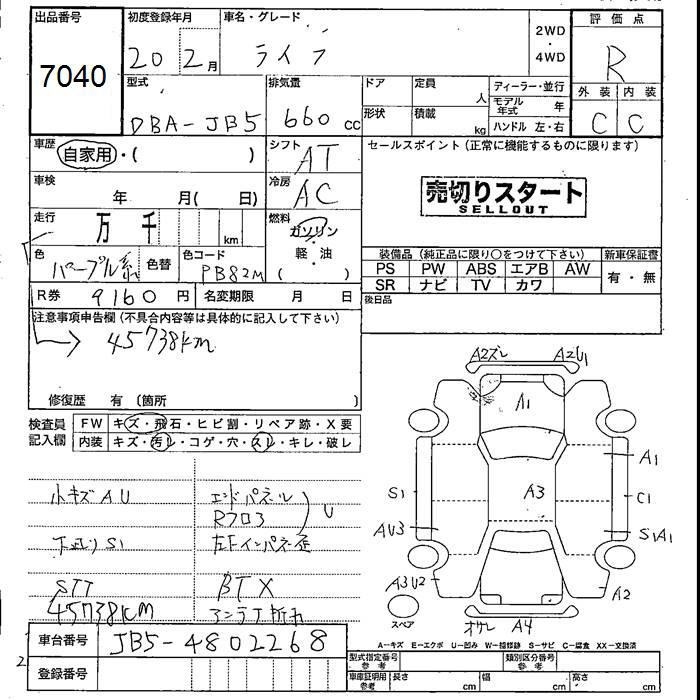 出品番号
7040
初度登録年月
20 2月
車名・グレード
ライフ
2WD
・
4WD
評価点
R
型式
DBA-JB5
排気量
660 cc
ドア
形状
定員
人
積載
kg
ディーラー・並行
モデル年式 年
ハンドル 左・右
外装 内装
C C
車歴
自家用・( )
シフト
AT
セールスポイント (正常に機能するものに限ります)
車検
年 月( 日)
冷房
AC
売切りスタート
SELLOUT
走行
万 千
km
燃料
ガソリン
・
軽・油
( )
色
パープル系
色替
色コード
PB82M
装備品 (純正品に限り○をつけて下さい)
新車保証書
PS PW ABS エアB AW
SR ナビ TV カワ
有・無
R券 9160 円
名変期限 月 日
後日品
注意事項申告欄 (不具合内容等は具体的に記入して下さい)
45738km
修復歴 有 (箇所 )
検査員
記入欄
FW キズ・飛石・ヒビ割・リペア跡・X要
内装 キズ・汚レ・コゲ・穴・スレ・キレ・破レ
小キズAU
エンドパネル
Rフロア
U
下廻りS1
左Fインパネ歪
STT
BTX
45738KM
アンテナ折れ
車台番号
JB5-4802268
登録番号
A2ズレ A2U1
A1
A1
S1
A3
C1
AU3
S1A1
A3U2
A2
スペア
オサレ A4
A-キズ E-エクボ U-凹み W-補修跡 S-サビ C-腐食 XX-交換済
型式指定番号
参考
類別区分番号
参考
車庫証明用
参考
長さ cm
幅 cm
高さ cm